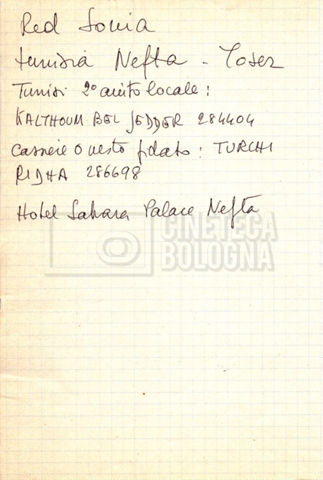 Red Sonia
tunisia Nefta - Tozer
Tunisi 2° aiuto locale :
KALTHOUM BEL JEDDER 284404
: TURCHI
RIDHA 286698
Hotel Sahara Palace Nefta
CINETECA
BOLOGNA